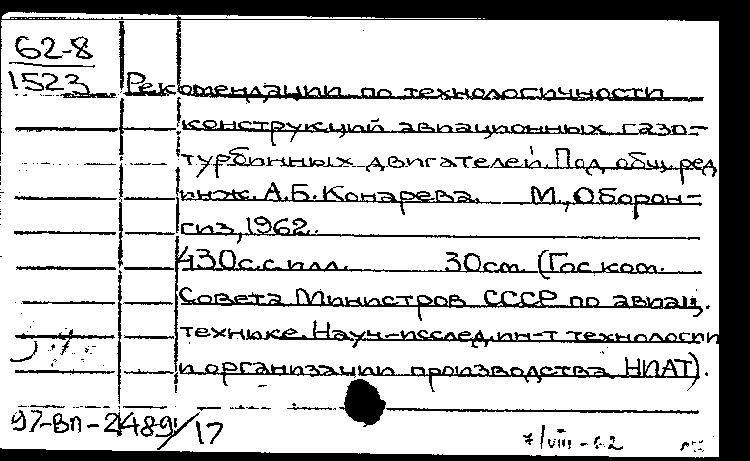 62-8
1523 Рекомендации по технологичности
конструкций авиационных газо-
турбинных двигателей. Под общ. ред.
инж. А.Б. Конарева. М., Оборон-
гиз, 1962.
430 с. с илл. 30 см. (Гос. ком.
Совета Министров СССР по авиац.
технике. Науч.-исслед. ин-т технологии
и организации производства НИАТ).
97-ВП-2489/17
7/VIII-62